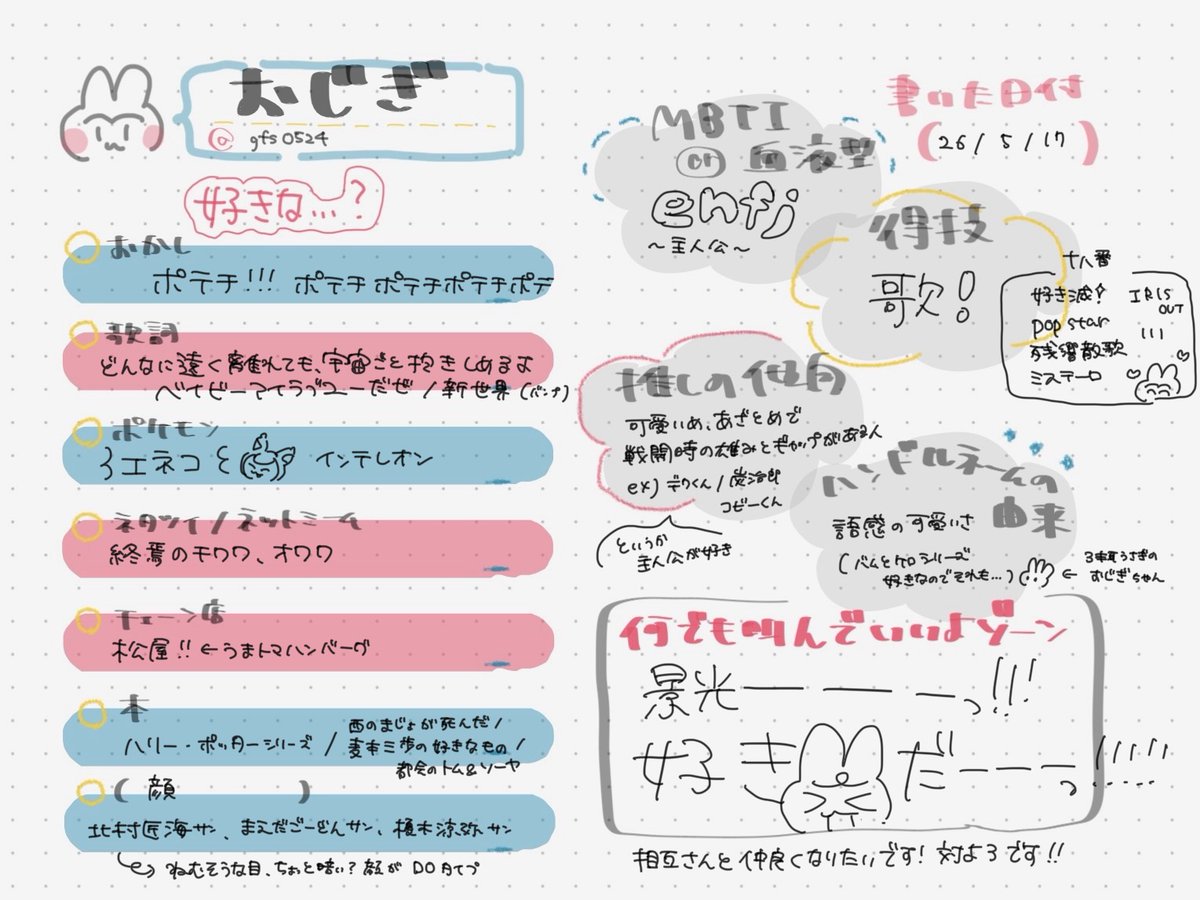 おじぎ
@ gfs0524
好きな…?
おかし
ポテチ!!! ポテチ ポテチポテチポテ
歌詞
どんなに遠く離れても、宇宙ごと抱きしめるよ
ベイビーアイラブユーだぜ / 新世界 (バンプ)
ポケモン
エネコ インテレオン
ネタツイ / ネットミーム
終焉のチワワ、オワワ
チェーン店
松屋!! ←うまトマハンバーグ
本
ハリー・ポッターシリーズ / 西のまじょが死んだ /
麦本三歩の好きなもの /
都会のトム&ソーヤ
( 顔 )
北村匠海サン、まえだごーどんサン、榎木淳弥サン
ねむそうな目、ちょっと暗い?顔が DOタイプ
書いた日付
( 26 / 5 / 17 )
MBTI
or 血液型
enfj
~主人公~
得技
歌!
十八番
好き滅! IRIS OUT
pop star
残響散歌
ミステーロ
推しの傾向
可愛いめ、あざとめで
戦闘時の雄みとギャップがある人
ex) デクくん / 炭治郎
コビーくん
というか
主人公が好き
ハンドルネームの
由来
語感の可愛いさ
(バムとケロシリーズ
好きなのでそれも…)
← 3本耳うさぎの
おじぎちゃん
何でも叫んでいいよゾーン
景光ーーーっ!!!
好きだーーーっ!!!!!
相互さんと仲良くなりたいです! 対よろです!!